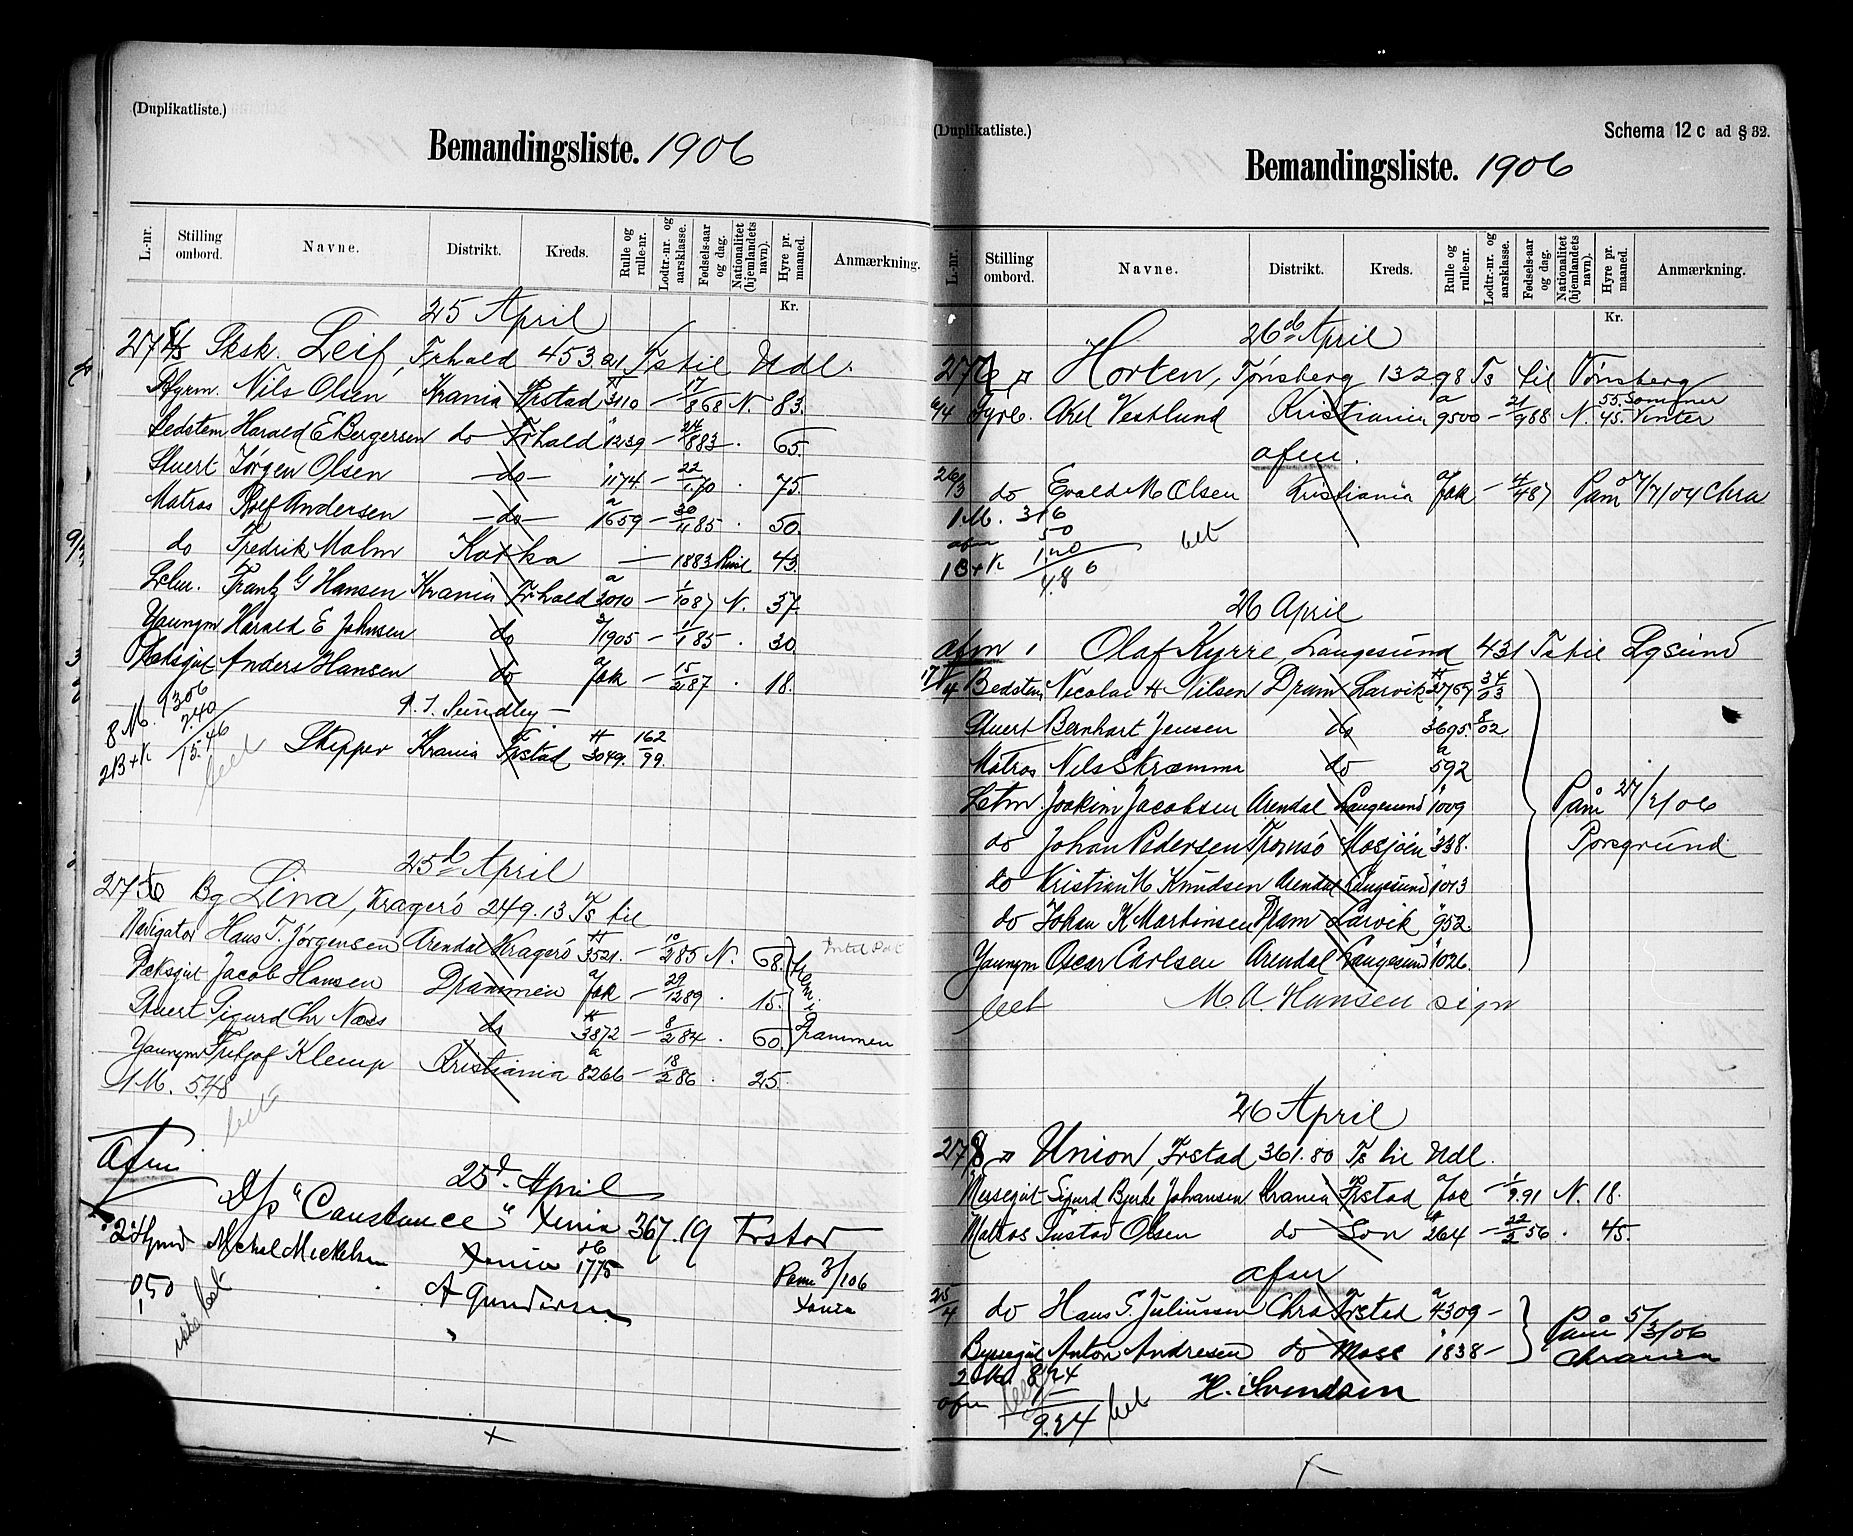 (Duplikatliste.)
Bemandingsliste. 1906
L.-nr. Stilling ombord. Navne. Distrikt. Kreds. Rulle og rulle-nr. Lodtr.-nr. og aarsklasse. Fødsels-aar og dag. Nationalitet (hjemlandets navn). Hyre pr. maaned. Anmærkning.
Kr.
25 April
Sksk. Leif, Frhald 453.91 Ts til Udl.
Styrm. Nils Olsen Krania Frstad 3110 — 17/8 68 N. 83.
Bedstem Harald E Bergersen do Frhald 1239 — 24/8 83 . 65.
Stuert Jørgen Olsen — do — 1174 — 22/1 70 . 75.
Matros Rolf Andersen — do — a 1659 — 30/11 85 . 50.
do Fredrik Malm Kotka — 1883 43.
Frantz G Hansen Krania Frhald a 3010 — 1/10 87 N. 37
Youngm Harald E Johnsen do 1905 — 11/1 85 . 30
Dæksgut Anders Hansen do — 15/2 87 . 18.
8 M. 1306
2.40
2B+K 15.46
P. T. Sundby —
Skipper Krania Frstad H 3049. 162/99.
25d April
Bg Lina, Kragerö 249.13 Ts til
Navigatör Hans T. Jörgensen Arendal Kragerö H 3521. — 10/2 85 N. 68.
Dæksgut Jacob Hansen Drammen — 29/12 89 . 15.
Stuert Sigurd Chr Næss do H 3872 — 8/2 84 . 60.
Drammen
Youngm Fritjof Klemp Kristiania a 8266 — 18/2 86 . 25.
1 M. 5.48
Afm
25d. April
D/s "Constance" Xania 367.19 Frstad
Michal Mickelsen Xania 1775 Paam 3/1 06
0,50 A Gundersen Xania
ikke bet
(Duplikatliste.)
Schema 12 c ad § 32.
Bemandingsliste. 1906
L.-nr. Stilling ombord. Navne. Distrikt. Kreds. Rulle og rulle-nr. Lodtr.-nr. og aarsklasse. Fødsels-aar og dag. Nationalitet (hjemlandets navn). Hyre pr. maaned. Anmærkning.
Kr.
26de April
Horten, Tönsberg 132 98 Ts til Tönsberg
6/4 Fyrb. Axel Vestlund Kristiania a 9500 — 21/9 88 N. 55. Sommer 45. Vinter
afm.
26/3 do Evald M Olsen Kristiania — 4/4 87 Paam 7/7/04 Chra
1 M. 316
afm 50
1B+K 1.20
4.86
bet
26 April
afm Olaf Kyrre, Langesund 431 Ts til Lgsund
17/4 Bedstem Nicolai H Nilsen Dram Larvik H 2767 34/03
Stuert Bernhart Jensen do 3695. 8/02
Matros Nils Skramma do a 592
Letm. Joakim Jacobsen Arendal Langesund 1009 Paam 27/2/06
do Johan Pedersen Tromsö Mosjöen 338. Porsgrund
do Kristian M Knudsen Arendal Langesund 1013
do Johan K Martinsen Dram Larvik 952
Youngm Oscar Carlsen Arendal Langesund 1026.
bet M. A. Hansen sign
26 April
278 Union, Frstad 361.80 Ts til Udl.
Messegut Sigurd Bjerke Johansen Krania Frstad — 9.91 N. 18.
Matros Gustav Olsen do Son 264 — 22/2 56 . 45.
afm
25/4 do Hans S. Juliussen Chra Frstad a 4309 —
Byssegut Anton Andresen do Moss 1838 — Paam 5/3/06
2 M. 8.24
afm 1 —
9.24 bet H. Svendsen